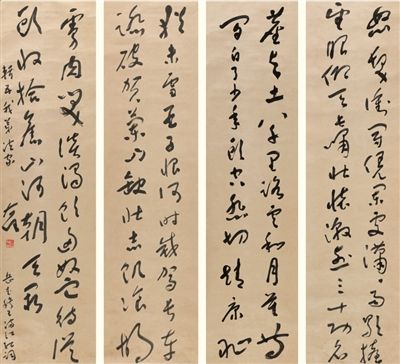 怒髮衝冠憑闌處瀟瀟雨歇擡
望眼仰天長嘯壯懷激烈三十功名
塵與土八千里路雲和月莫等
閒白了少年頭空悲切靖康恥
猶未雪臣子恨何時滅駕長車
踏破賀蘭山缺壯志飢餐胡
虜肉笑談渴飲匈奴血待從
頭收拾舊山河朝天闕
岳武穆滿江紅詞